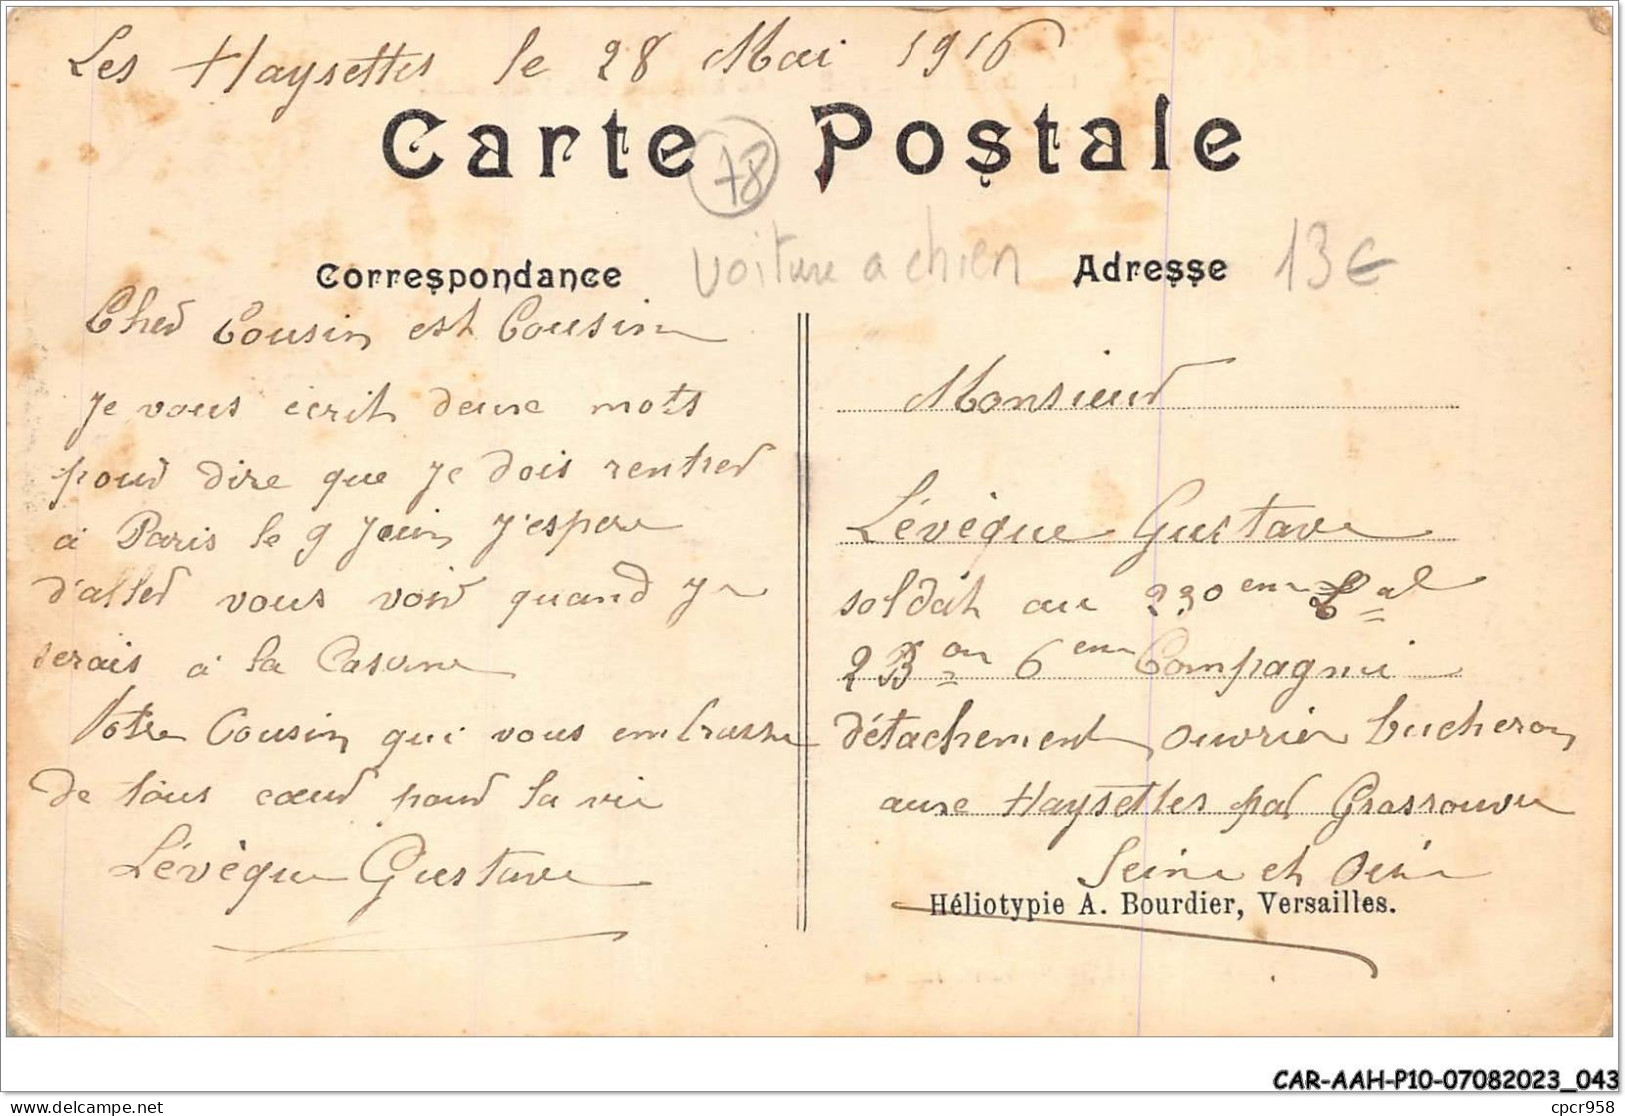 Les Haysettes le 28 Mai 1916
Carte Postale
78
voiture a chien
13€
Correspondance
Cher Cousin est Cousine
Je vous ecrit deux mots
pour dire que je dois rentrer
à Paris le 9 Juin J'espere
d'aller vous voir quand je
serais à la Caserne
Votre Cousin qui vous embrasse
de tous cœur pour la vie
Lévèque Gustave
Adresse
Monsieur
Lévèque Gustave
soldat au 230 eme
2 B on 6 eme Compagnie
détachement ouvrier bucheron
aux Haysettes par Grosrouvre
Seine et Oise
Héliotypie A. Bourdier, Versailles.
CAR-AAH-P10-07082023_043
delcampe.net
cpcr958